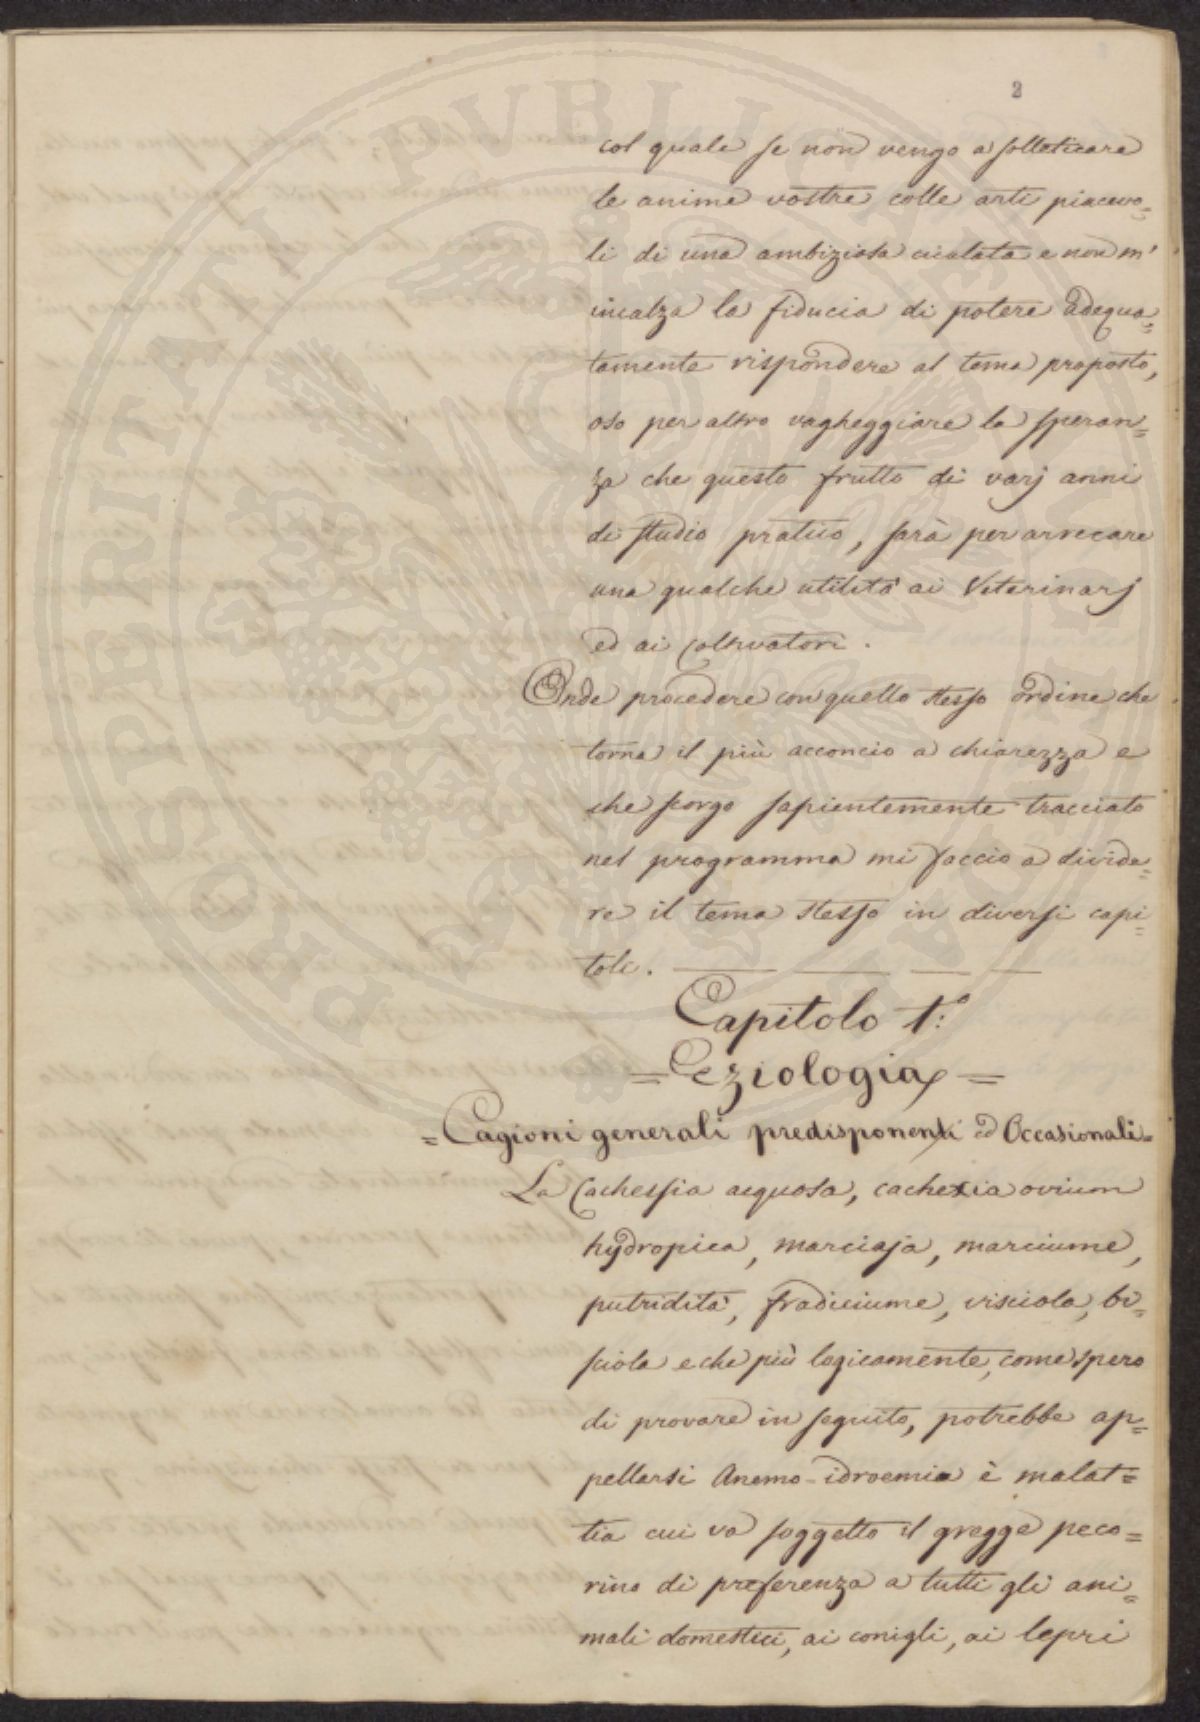 2
col quale se non vengo a solleticare
le anime vostre colle arti piacevo=
li di una ambiziosa cicalata e non m'
incalza la fiducia di potere adequa=
tamente rispondere al tema proposto,
oso per altro vagheggiare la speran=
za che questo frutto di varj anni
di studio pratico, sarà per arrecare
una qualche utilità ai Veterinarj
ed ai coltivatori.
Onde procedere con quello stesso ordine che
torna il più acconcio a chiarezza e
che scorgo sapientemente tracciato
nel programma mi faccio a divide=
re il tema stesso in diversi capi=
toli.
Capitolo 1.º
= Eeziologia =
= Cagioni generali predisponenti ed Occasionali =
La Cachessia acquosa, cachexia ovium
hydropica, marciaja, marciume,
putridità, fradiciume, visciola, bi=
sciola e che più logicamente, come spero
di provare in seguito, potrebbe ap=
pellarsi Anemo-idroemia è malat=
tia cui va soggetto il gregge peco=
rino di preferenza a tutti gli ani=
mali domestici, ai conigli, ai lepri
PROSPERITATI PVBLICAE